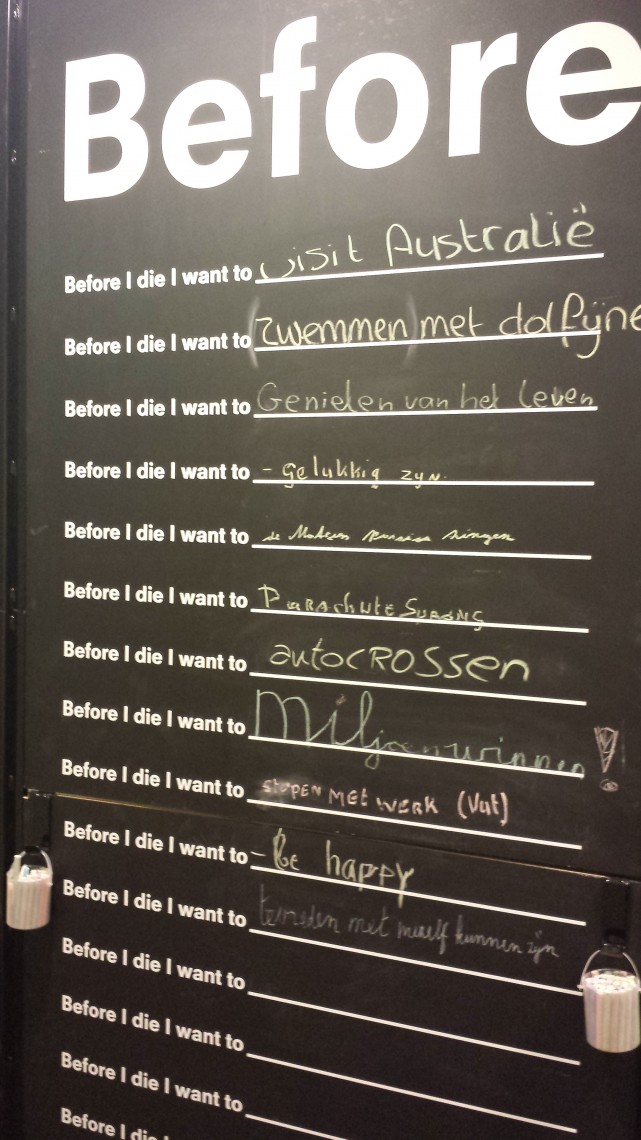 Before
Before I die I want to visit Australië
Before I die I want to (zwemmen) met dolfijne
Before I die I want to Genieten van het leven
Before I die I want to - gelukkig zijn.
Before I die I want to de
Before I die I want to Parachute
Before I die I want to autocrossen
Before I die I want to Miljoen winnen!
Before I die I want to stopen met werk (Vut)
Before I die I want to - Be happy
Before I die I want to tevreden met mezelf kunnen zijn
Before I die I want to
Before I die I want to
Before I die I want to
Before I die I